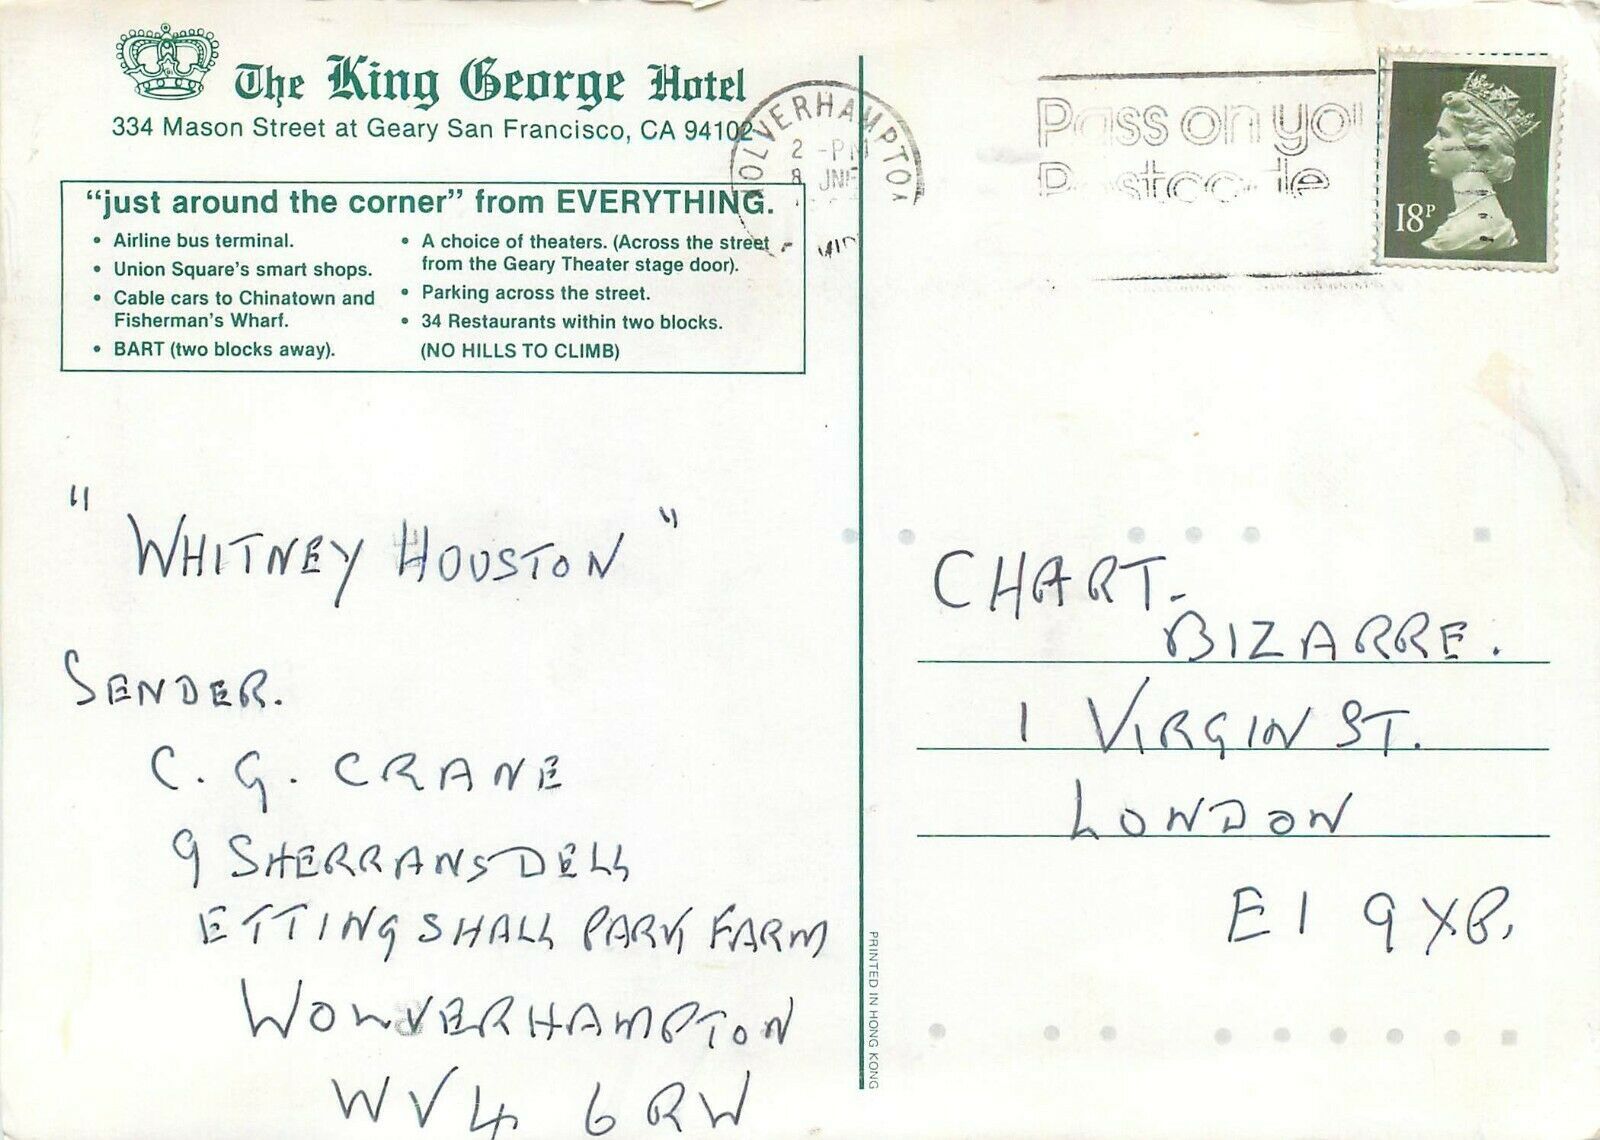 The King George Hotel
334 Mason Street at Geary San Francisco, CA 94102
"just around the corner" from EVERYTHING.
• Airline bus terminal.
• Union Square's smart shops.
• Cable cars to Chinatown and
Fisherman's Wharf.
• BART (two blocks away).
• A choice of theaters. (Across the street
from the Geary Theater stage door).
• Parking across the street.
• 34 Restaurants within two blocks.
(NO HILLS TO CLIMB)
"WHITNEY HOUSTON"
SENDER.
C. G. CRANE
9 SHERRANSDELL
ETTINGSHALL PARK FARM
WOLVERHAMPTON
WV4 6RW
PRINTED IN HONG KONG
WOLVERHAMPTON
2 -PM
8 JNE
Pass on you
Postcode
18P
CHART.
BIZARRE.
1 VIRGIN ST.
LONDON
E1 9XP.